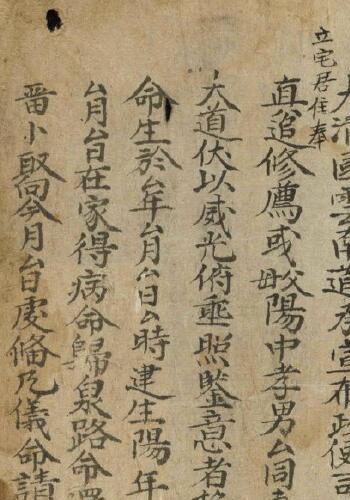 大清國雲南道承宣布政使司
立宅居住奉
直追修薦或故陽中孝男厶同
大道伏以威光俯垂照鑒意者
命生於厶年厶月厶日厶時建生陽年
厶月厶日在家得病命歸泉路命還
今月厶日虔備凡儀命請